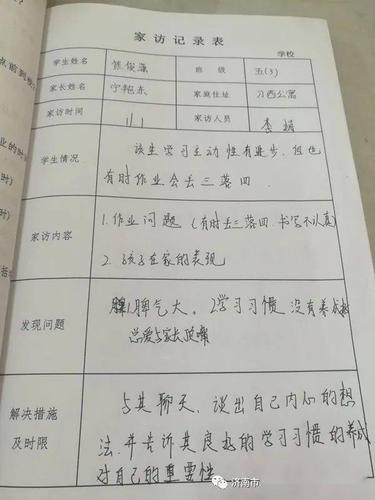 家访记录表
学校
学生姓名 张俊潇 班级 五(3)
家长姓名 宁艳东 家庭住址 刁西公寓
家访时间 11.1 家访人员 李娟
学生情况
该生学习主动性有进步，但也
有时作业会丢三落四.
家访内容
1.作业问题(有时丢三落四.书写不认真)
2.孩子在家的表现
发现问题
1脾气大，2学习习惯没有养成好
总爱与家长顶嘴
解决措施
及时限
与其聊天，谈出自己内心的想
法.并告诉其良好的学习习惯的养成
对自己的重要性
济南市